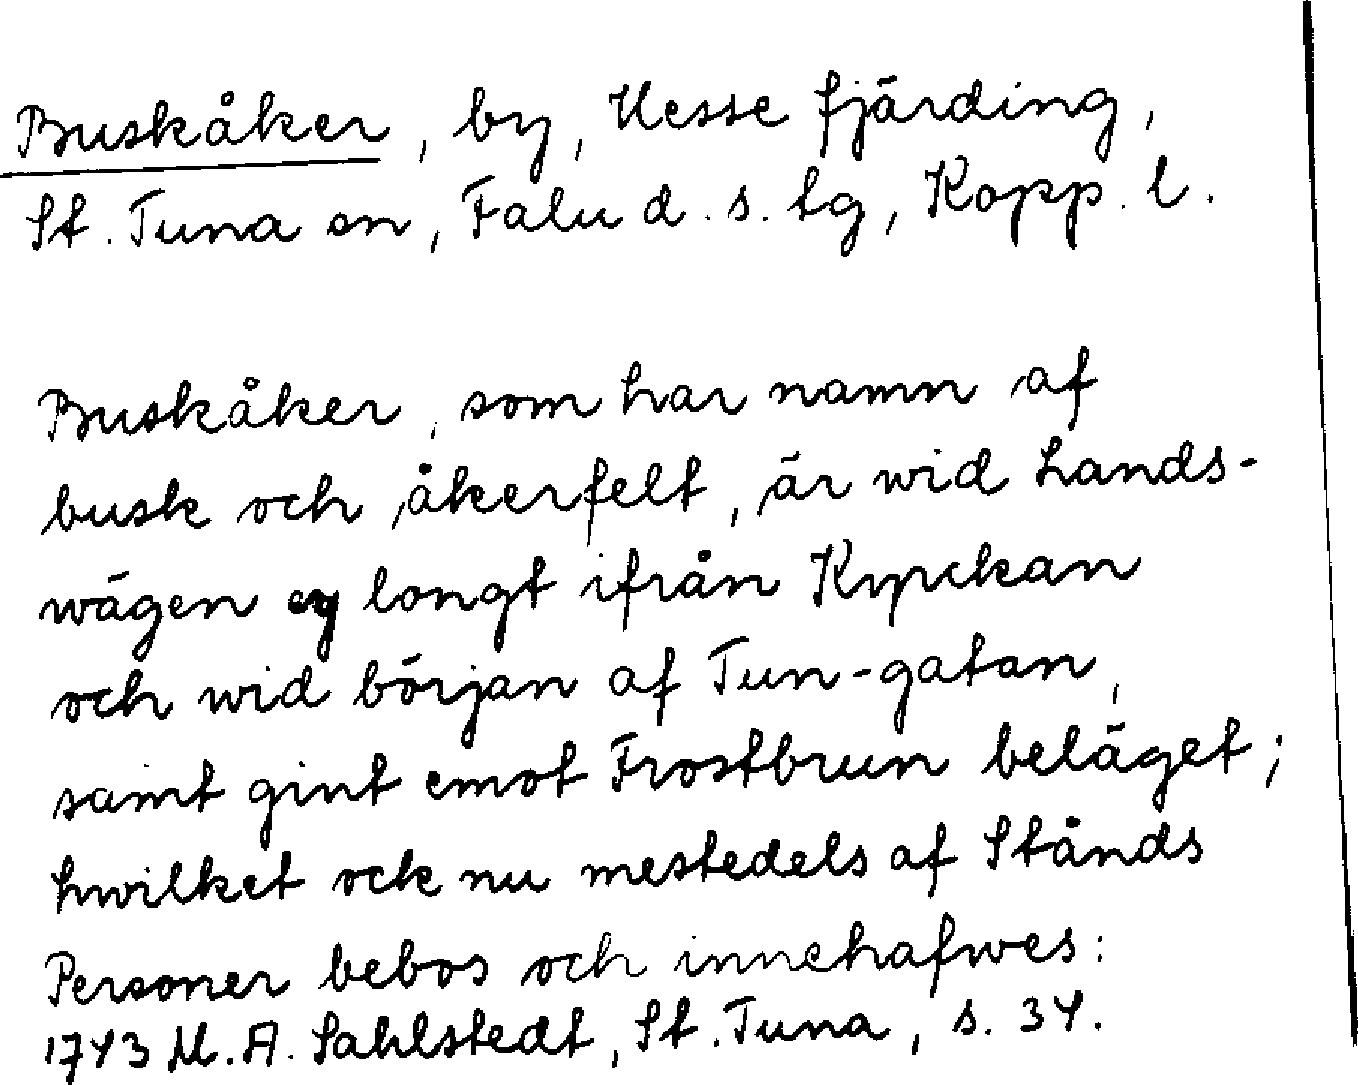 Buskåker, by, Uesse fjärding,
St. Tuna sn, Falu d. s. tg, Kopp. l.
Buskåker, som har namn af
busk och åkerfelt, är wid Lands-
wägen ey longt ifrån Kyrckan
och wid början af Tun-gatan,
samt gint emot Frostbrun beläget;
hwilket ock nu mestedels af Stånds
Personer bebos och innehafwes:
1743 M. A. Sahlstedt, St. Tuna, s. 34.